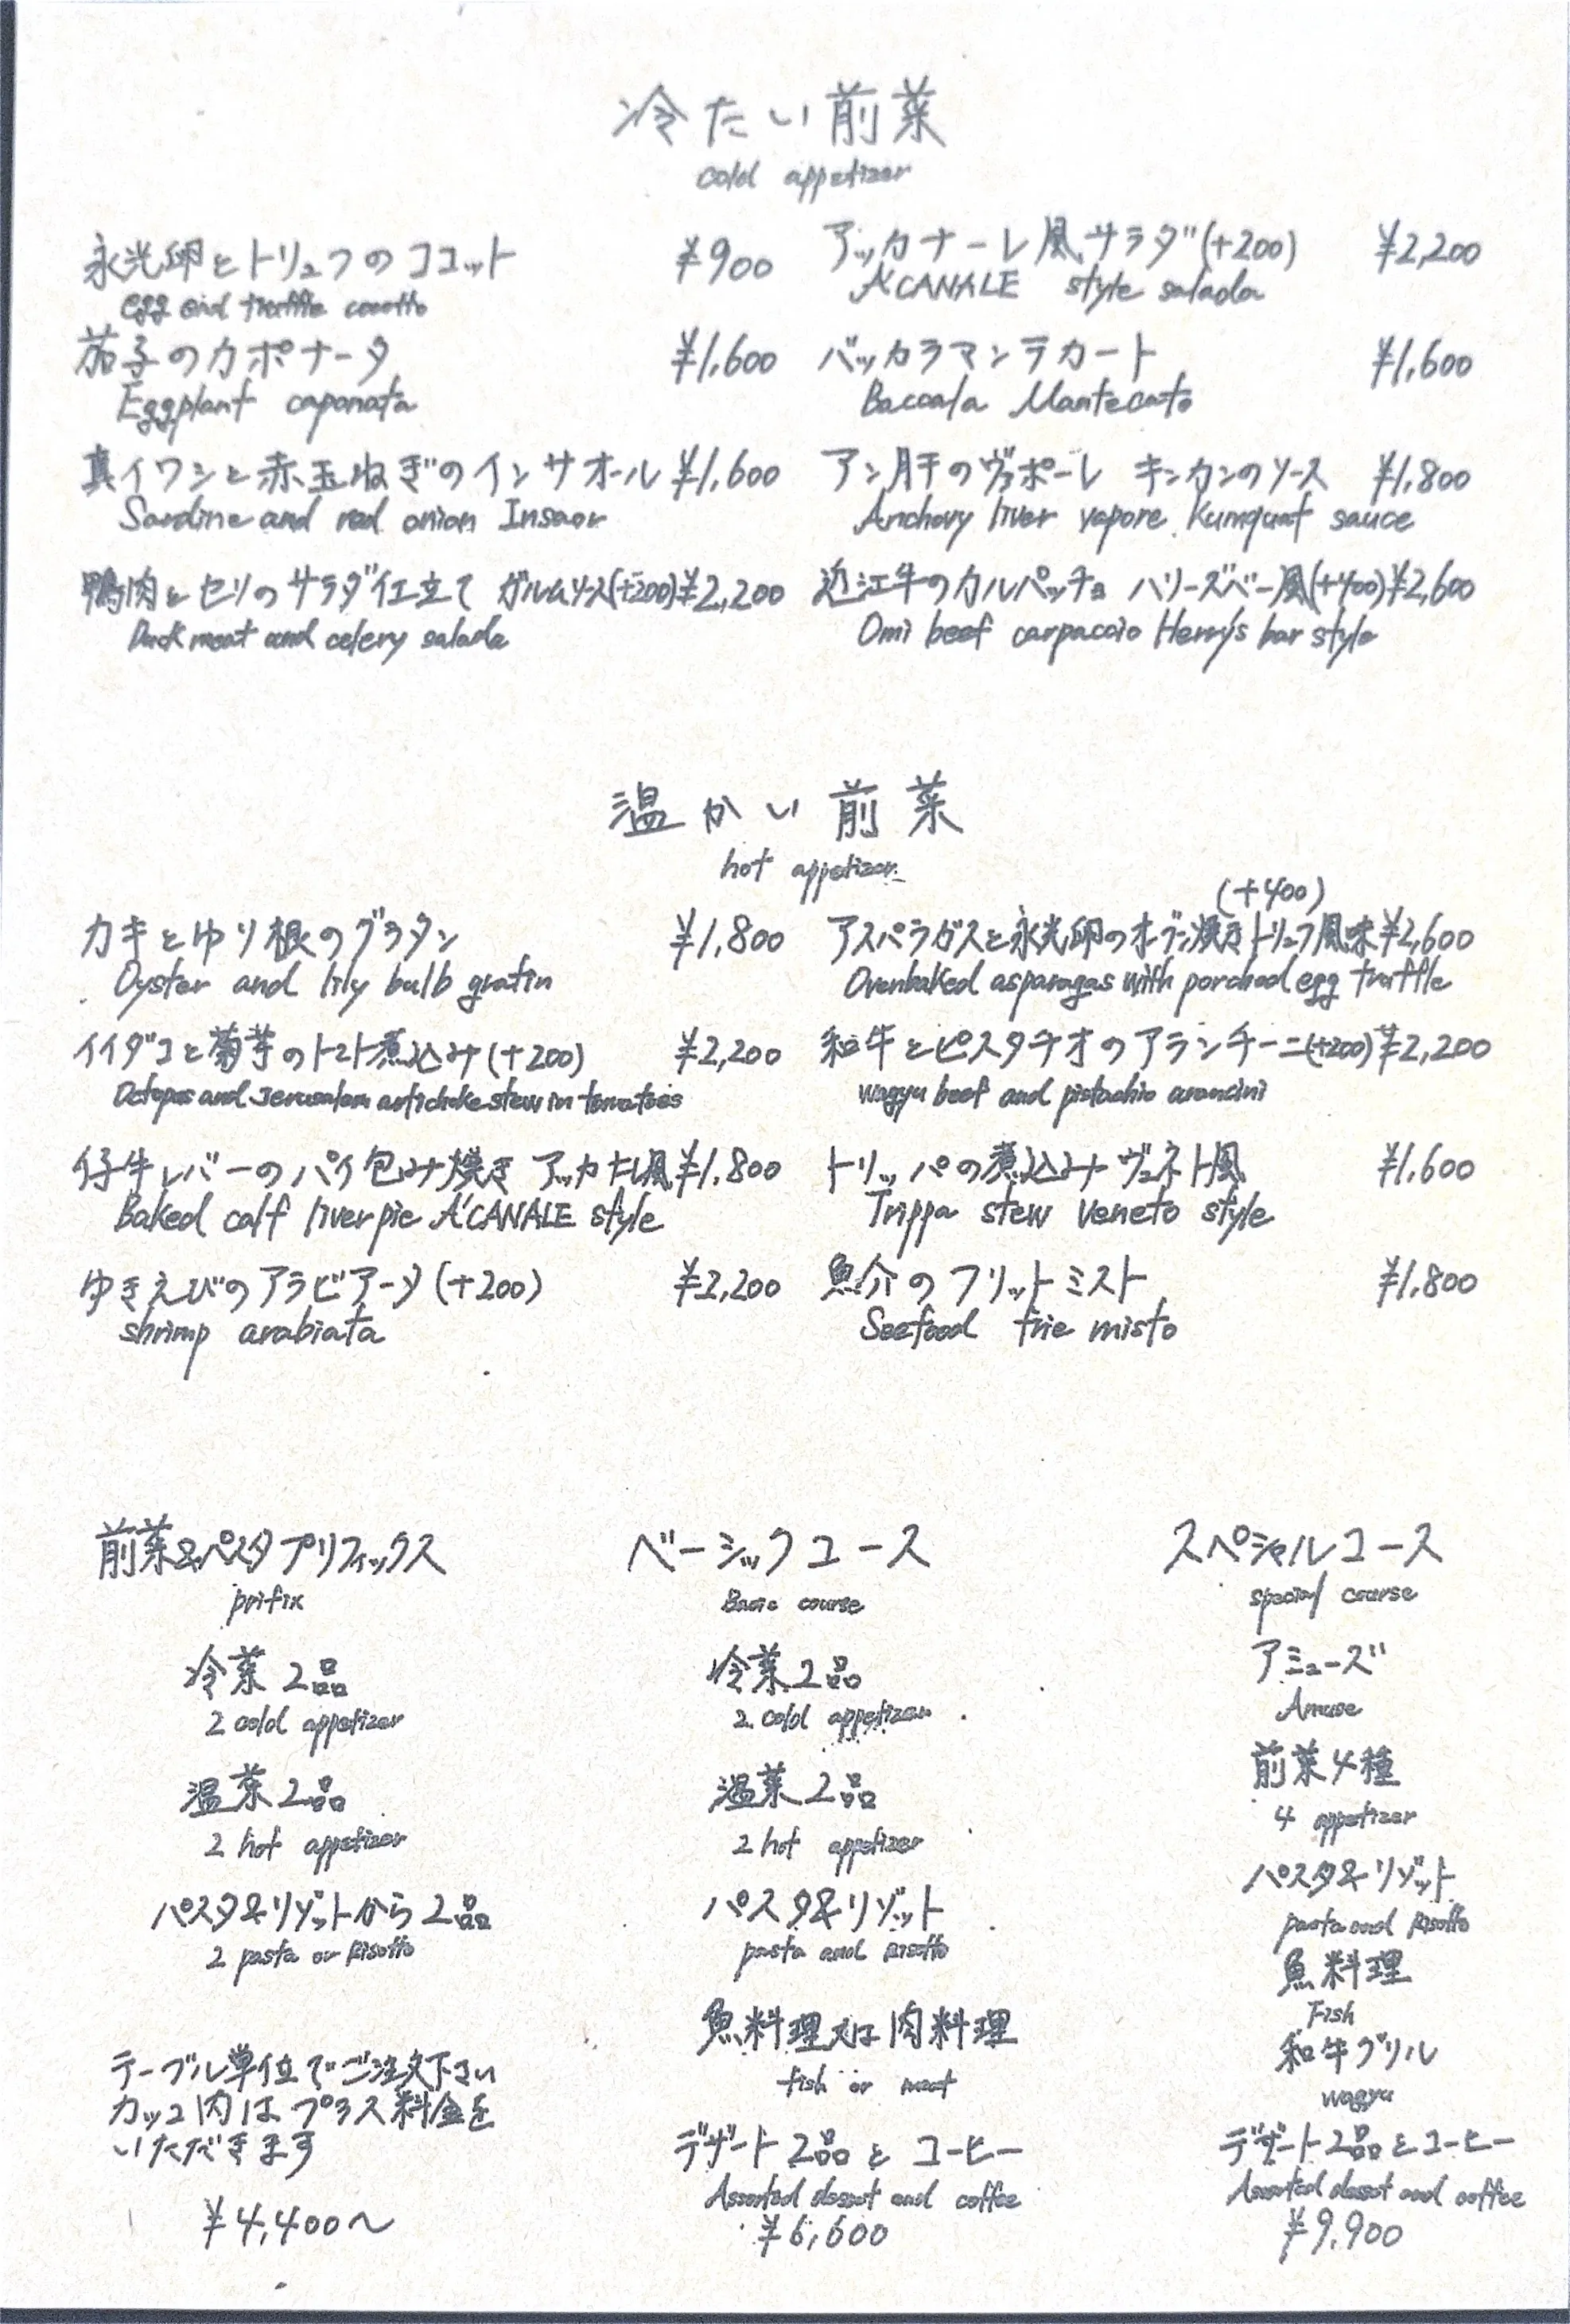 冷たい前菜
cold appetizer
永光卵とトリュフのココット ¥900
egg and truffle cocotto
茄子のカポナータ ¥1,600
Eggplant caponata
真イワシと赤玉ねぎのインサオール ¥1,600
Sardine and red onion Insaor
鴨肉とセリのサラダ仕立て ガルムソース(+200) ¥2,200
Duck meat and celery salada
アッカナーレ風サラダ(+200) ¥2,200
A'CANALE style salada
バッカラマンテカート ¥1,600
Baccala Mantecato
アン肝のヴァポーレ キンカンのソース ¥1,800
Anchovy liver vapore Kumquat sauce
近江牛のカルパッチョ ハリーズバー風(+400) ¥2,600
Omi beef carpaccio Henry's bar style
温かい前菜
hot appetizer
カキとゆり根のグラタン ¥1,800
Oyster and lily bulb gratin
イイダコと菊芋のトマト煮込み(+200) ¥2,200
Octopus and Jerusalem artichoke stew in tomatoes
仔牛レバーのパイ包み焼き アッカナーレ風 ¥1,800
Baked calf liver pie A'CANALE style
ゆきえびのアラビアータ(+200) ¥2,200
shrimp arabiata
(+400)
アスパラガスと永光卵のオーブン焼きトリュフ風味 ¥2,600
Ovenbaked asparagas with porchad egg truffle
和牛とピスタチオのアランチーニ(+200) ¥2,200
wagyu beef and pistachio arancini
トリッパの煮込み ヴェネト風 ¥1,600
Trippa stew Veneto style
魚介のフリットミスト ¥1,800
Seefood frie misto
前菜&パスタプリフィックス
prifix
冷菜2品
2 cold appetizer
温菜2品
2 hot appetizer
パスタ&リゾットから2品
2 pasta or Risotto
テーブル単位でご注文下さい
カッコ内はプラス料金を
いただきます
¥4,400～
ベーシックコース
Basic course
冷菜2品
2 cold appetizer
温菜2品
2 hot appetizer
パスタ&リゾット
pasta and Risotto
魚料理又は肉料理
fish or meat
デザート2品とコーヒー
Assorted dessot and coffee
¥6,600
スペシャルコース
special course
アミューズ
Amuse
前菜4種
4 appetizer
パスタ&リゾット
pasta and Risotto
魚料理
Fish
和牛グリル
wagyu
デザート2品とコーヒー
Assorted dessot and coffee
¥9,900